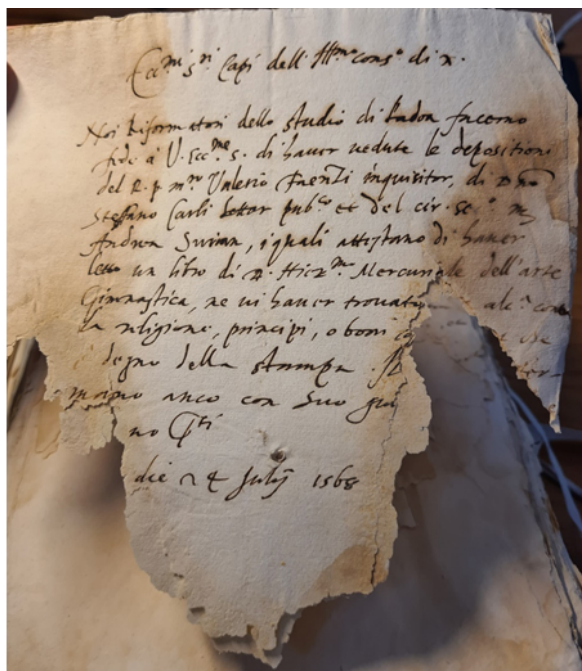 Ecc.mi S.ri Capi dell Ill.mo cons.o di x.
Noi Riformatori dello studio di Padoa facemo
fede à V. Ecc.me S. di hauer uedute le depositioni
del R. p. m.ro Valerio Faenzi inquisitor, di D.no
Stefano Carli lettor pub.co et del cir. se.o m.
Andrea Surian, i quali attestano di hauer
letto un libro di D. Hier.mo Mercuriale dell'arte
Gimnastica, ne ui hauer trouato alc.a cont
la religione, principi, o boni che
degno della stampa.
mamo anco con suo giu
no
die 24 Julij 1568